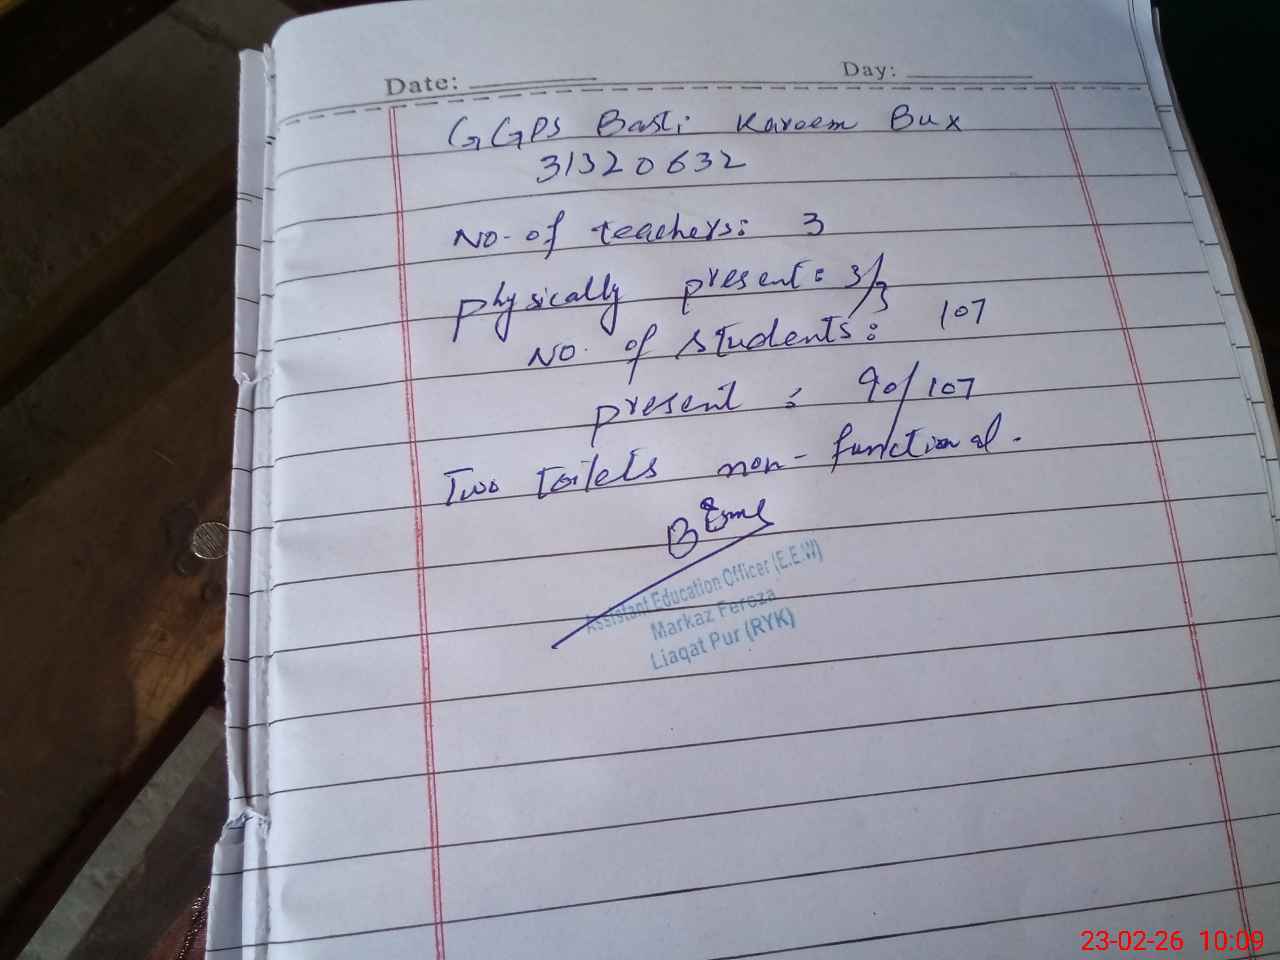 Date: Day:
GGPS Basti Kareem Bux
31320632
No. of teachers: 3
physically present: 3/3
No. of students: 107
present: 90/107
Two toilets non-functional.
Assistant Education Officer (E.E.W)
Markaz Feroza
Liaqat Pur (RYK)
23-02-26 10:09